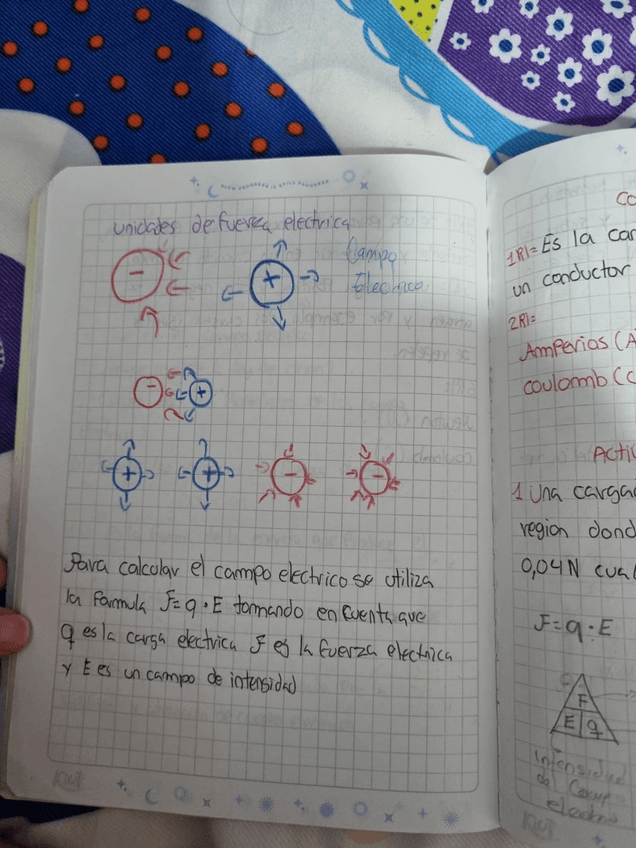 unidades de fuerza electrica
Campo
Electrico
-
+
-
+
+
+
-
-
Para calcular el campo electrico se utiliza
la formula F=q·E tomando en cuenta que
q es la carga electrica F es la fuerza electrica
y E es un campo de intensidad
CO
1R1= Es la car
un conductor
2R1=
Amperios (A
coulomb (C
Acti
1 Una carga
region dond
0,04N cual
F=q·E
F
E q
intensidad
del Campo
electric